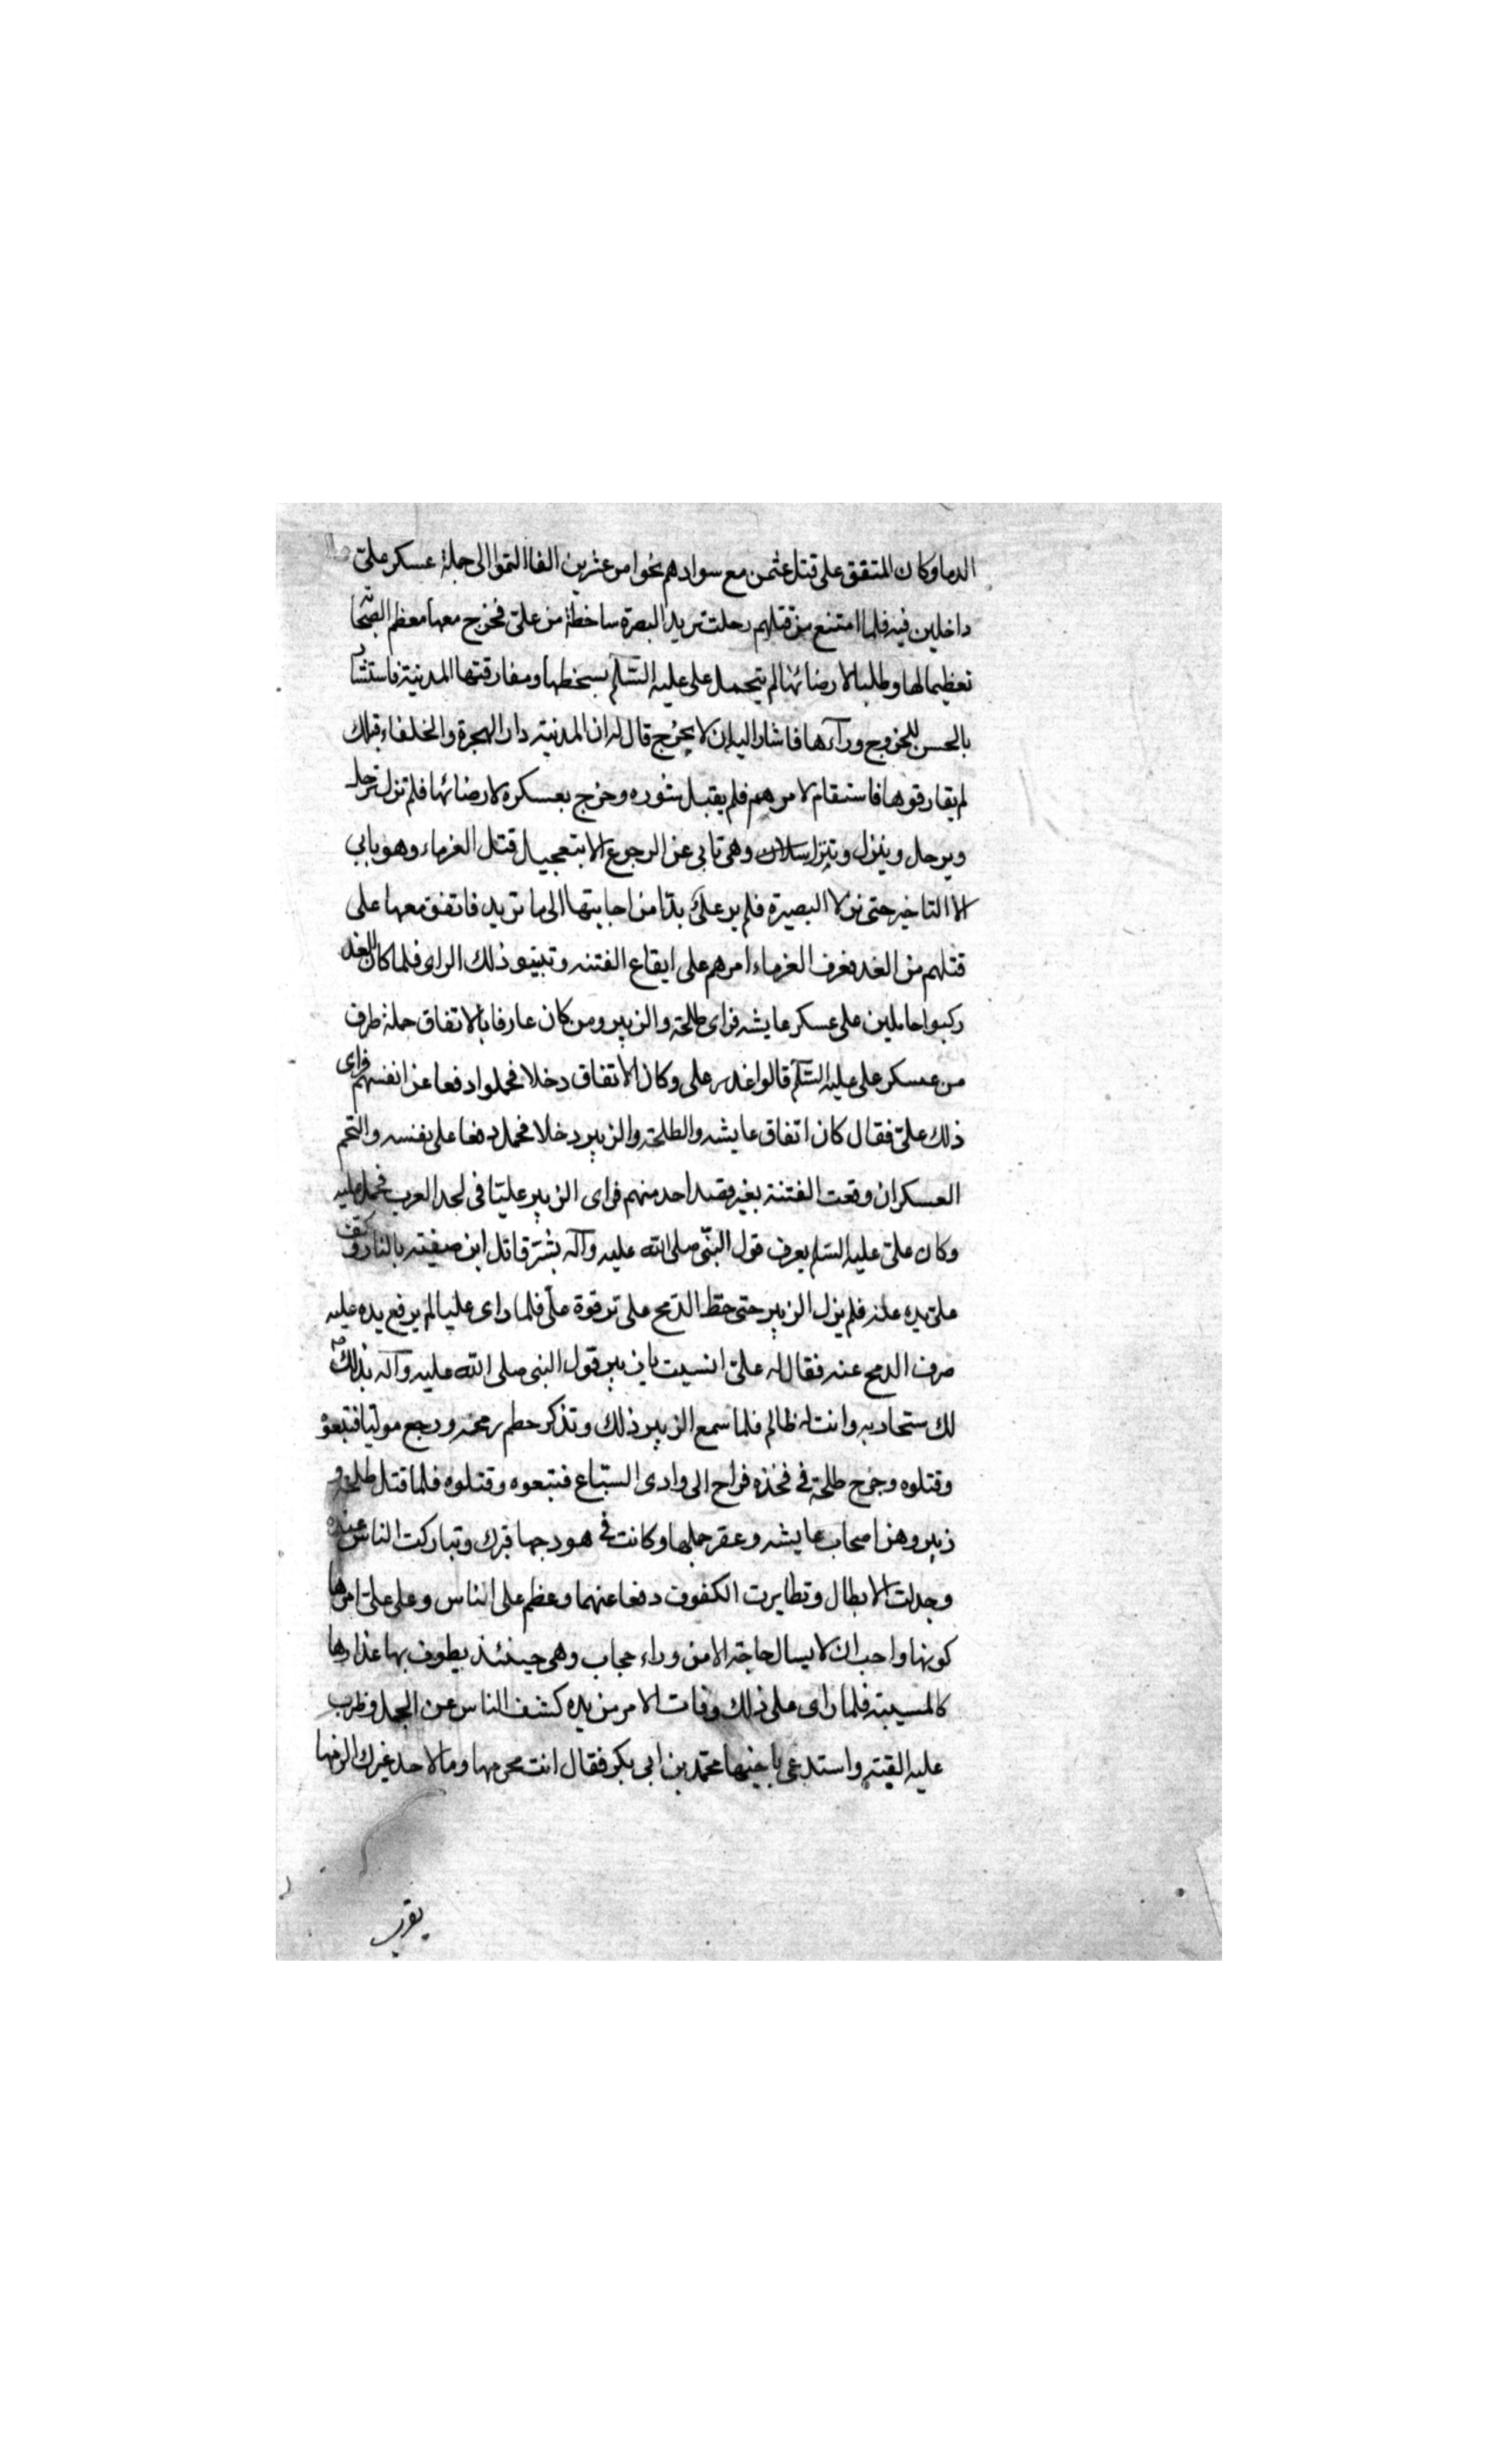 الدما وكان المتقق على قتل عثمن مع سوادهم نحوا من عشرين الفا التموا الى جملة عسكر على
داخلين فيه فلما امتنع من قتلهم رحلت تريد البصرة ساخطة من على فخرج معها معظم الصحابة
تعظيما لها وطلبا لارضائها لم يتحمل على عليه السلم بسخطها ومفارقتها المدينة فاستشار
بالحسن للخروج ورآءها فاشار اليه ان لا يخرج قال له ان المدينة دار الهجرة والخلفاء قبلك
لم يفارقوها فاستقام لامرهم فلم يقبل شوره وخرج بعسكره لارضائها فلم تزل ترحل
ويرحل وينزل وتنزل وهى تابى عن الرجوع الا بتعجيل قتل الغرماء وهو يابى
الا التاخير حتى نزلا البصيرة فلم ير على بدا من اجابتها الى ما تريد فاتفق معها على
قتلهم من الغد فعرف الغرماء امرهم على ايقاع الفتنه وتبيتو ذلك الراى فلما كان الغد
ركبوا حاملين على عسكر عايشه فراى طلحة والزبير ومن كان عارفا بالاتفاق حملة طرف
من عسكر على عليه السلم قالوا غدر على وكان الاتفاق دخلا فحملوا دفعا عن انفسهم فراى
ذلك على فقال كان اتفاق عايشه والطلحة والزبير دخلا فحمل دفعا على نفسه والتحم
العسكران وقعت الفتنة بغير قصد احد منهم فراى الزبير عليا فى لجد العرب فحمل عليه
وكان على عليه السلم يعرف قول النبى صلى الله عليه وآله بشر قاتل ابن صفيته بالنار وكف
على يده عنه فلم يزل الزبير حتى حط الرمح على ترقوة على فلما راى عليا لم يرفع يده عليه
صرف الرمح عنه فقال له على انسيت يا زبير قول النبى صلى الله عليه وآله بذلك
لك ستحاربه وانت له ظالم فلما سمع الزبير ذلك وتذكر حطم رمحه ورجع موليا فتبعوه
وقتلوه وجرح طلحة فى فخذه فراح الى وادى السباع فتبعوه وقتلوه فلما قتل طلحة و
زبير وهزا صحاب عايشه وعقر جملها وكانت فى هودجها فبرك وتباركت الناس عنده
وجدلت الابطال وتطايرت الكفوف دفعا عنهما وعظم على الناس وعلى على امرها
كونها واجب ان لا يسال حاجة الا من وراء حجاب وهى حينئذ يطوف بها
كالمسيبة فلما راى على ذلك وفات الامر من يده كشف الناس عن الجمل وضرب
عليه القبته واستدعى باخيها محمد بن ابى بكر فقال انت محرمها وما لاحد غيرك
يقرب